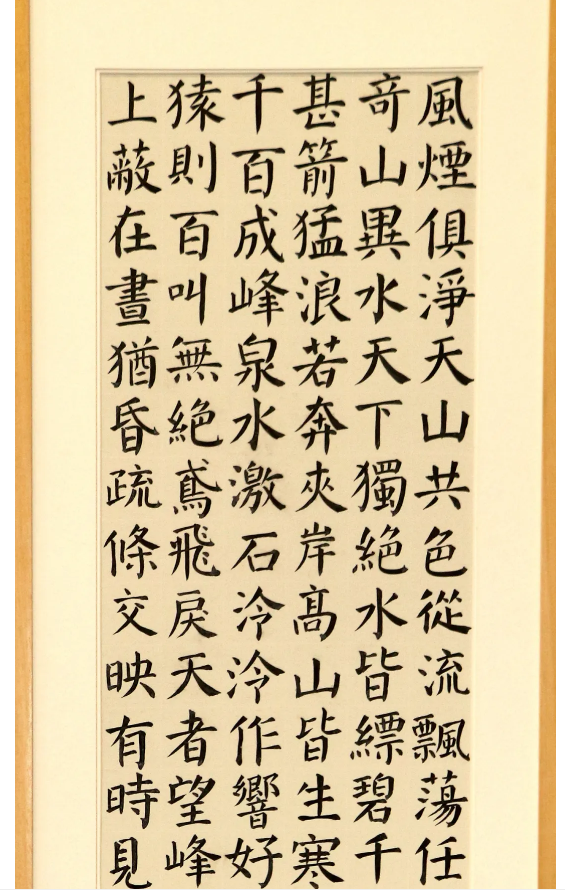 風煙俱淨天山共色從流飄蕩任
奇山異水天下獨絕水皆縹碧千
甚箭猛浪若奔夾岸高山皆生寒
千百成峰泉水激石泠泠作響好
猿則百叫無絕鳶飛戾天者望峰
上蔽在晝猶昏疏條交映有時見